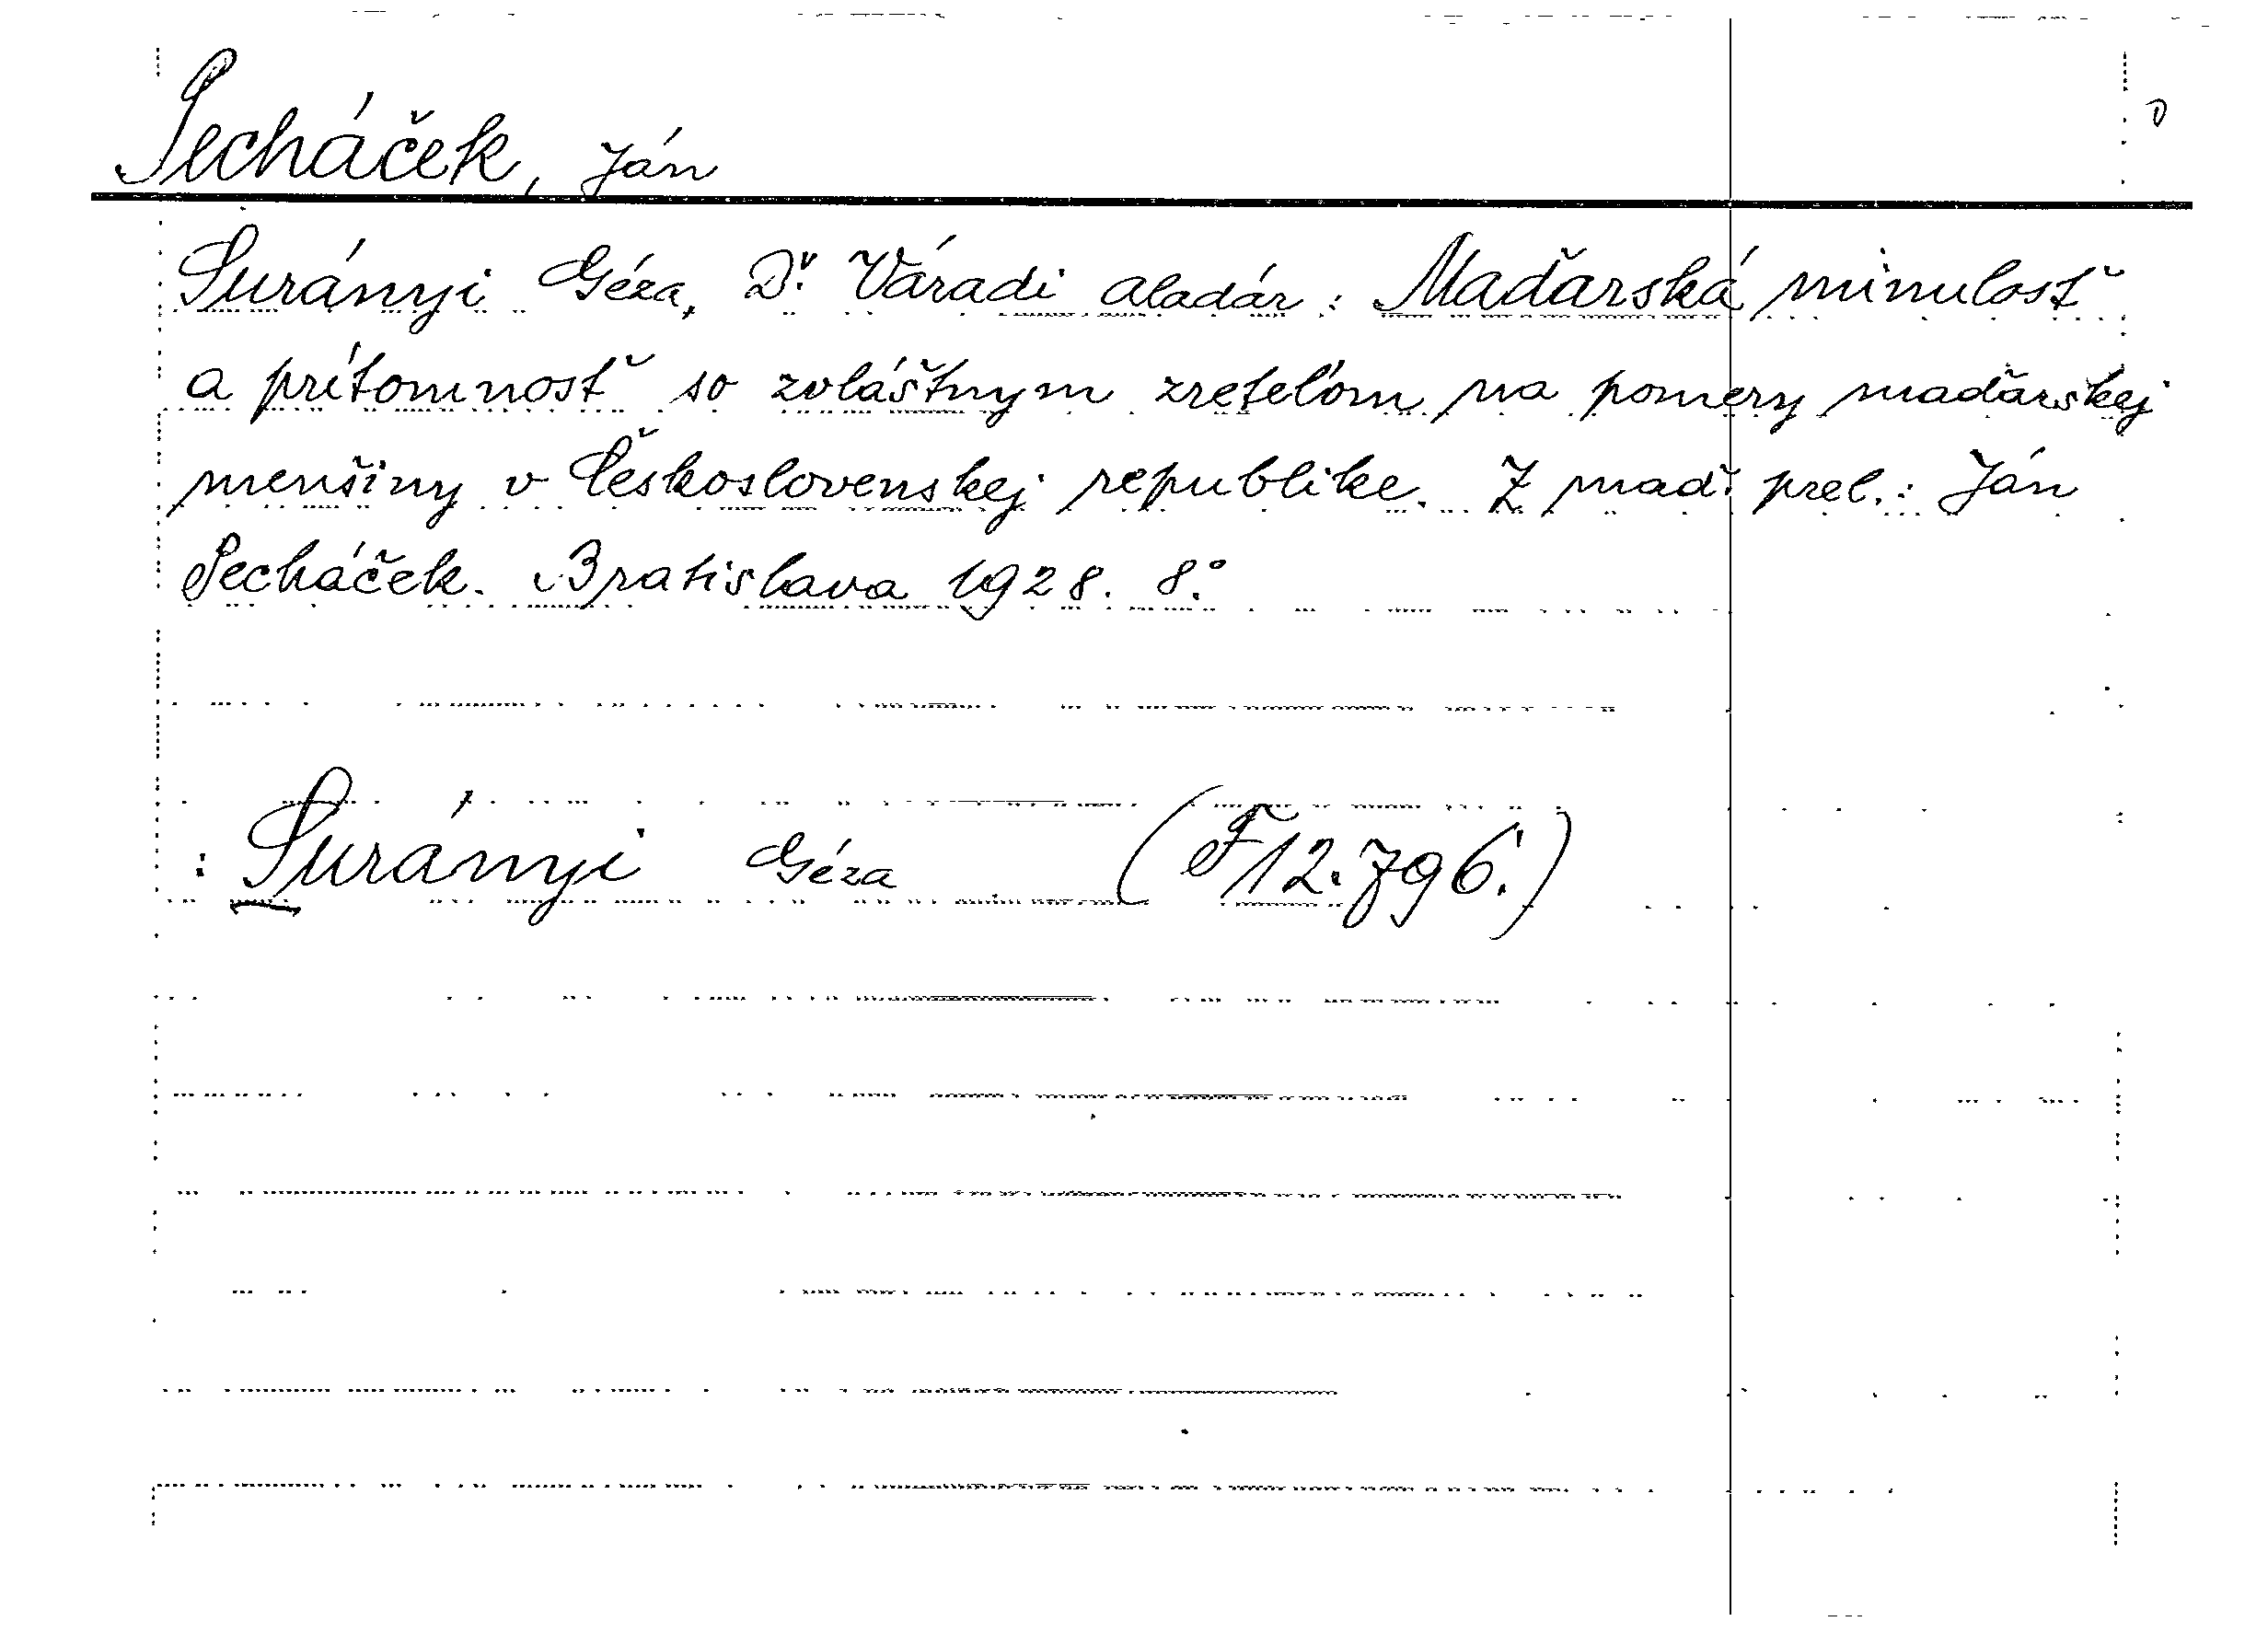 Secháček, Ján
Surányi Géza, Dr. Váradi Aladár: Maďarská minulosť
a prítomnosť so zvláštnym zreteľom na pomery maďarskej
menšiny v Československej republike. Z maď. prel.: Ján
Secháček. Bratislava 1928. 8.°
: Surányi Géza (F12.796.)